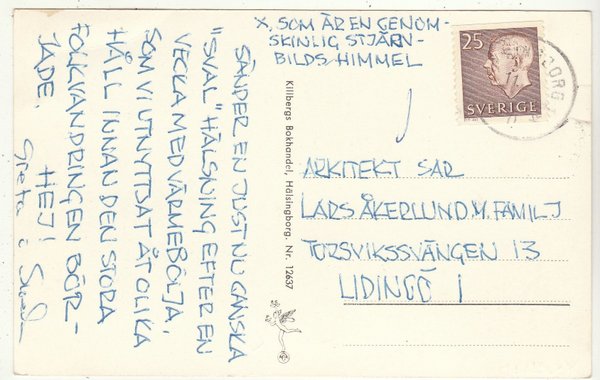 X, SOM ÄR EN GENOM-
SKINLIG STJÄRN-
BILDSHIMMEL
SÄNDER EN JUST NU GANSKA
"SVAL" HÄLSNING EFTER EN
VECKA MED VÄRMEBÖLJA,
SOM VI UTNYTTJAT ÅT OLIKA
HÅLL INNAN DEN STORA
FOLKVANDRINGEN BÖR-
JADE.
HEJ!
Greta &
Killbergs Bokhandel, Hälsingborg. Nr. 12637
25
SVERIGE
ARKITEKT SAR
LARS ÅKERLUND M. FAMILJ
TORSVIKSSVÄNGEN 13
LIDINGÖ 1